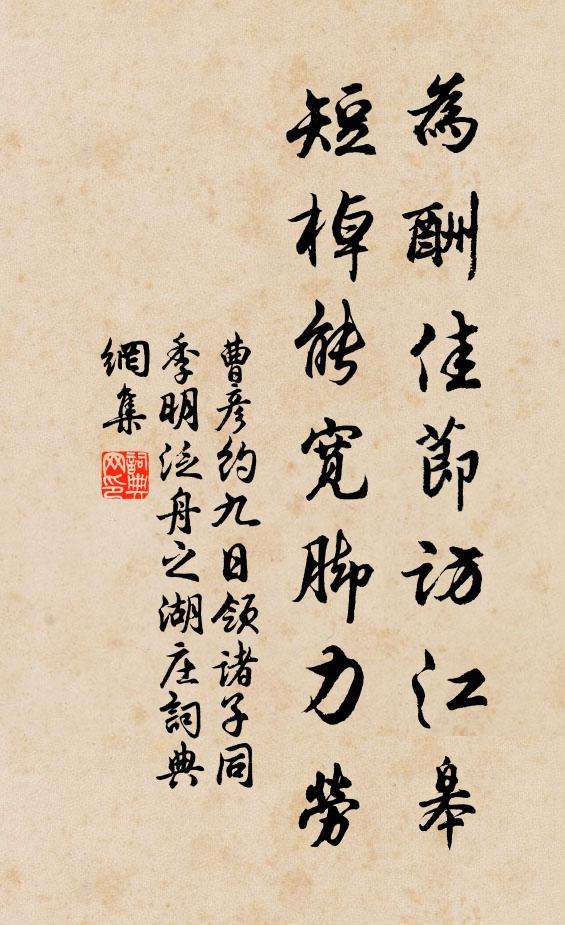 為酬佳節訪江皋
短棹能寬脚力勞
曹彦約九日領諸子同
季明泛舟之湖庄詞典
網集
詞典
网印